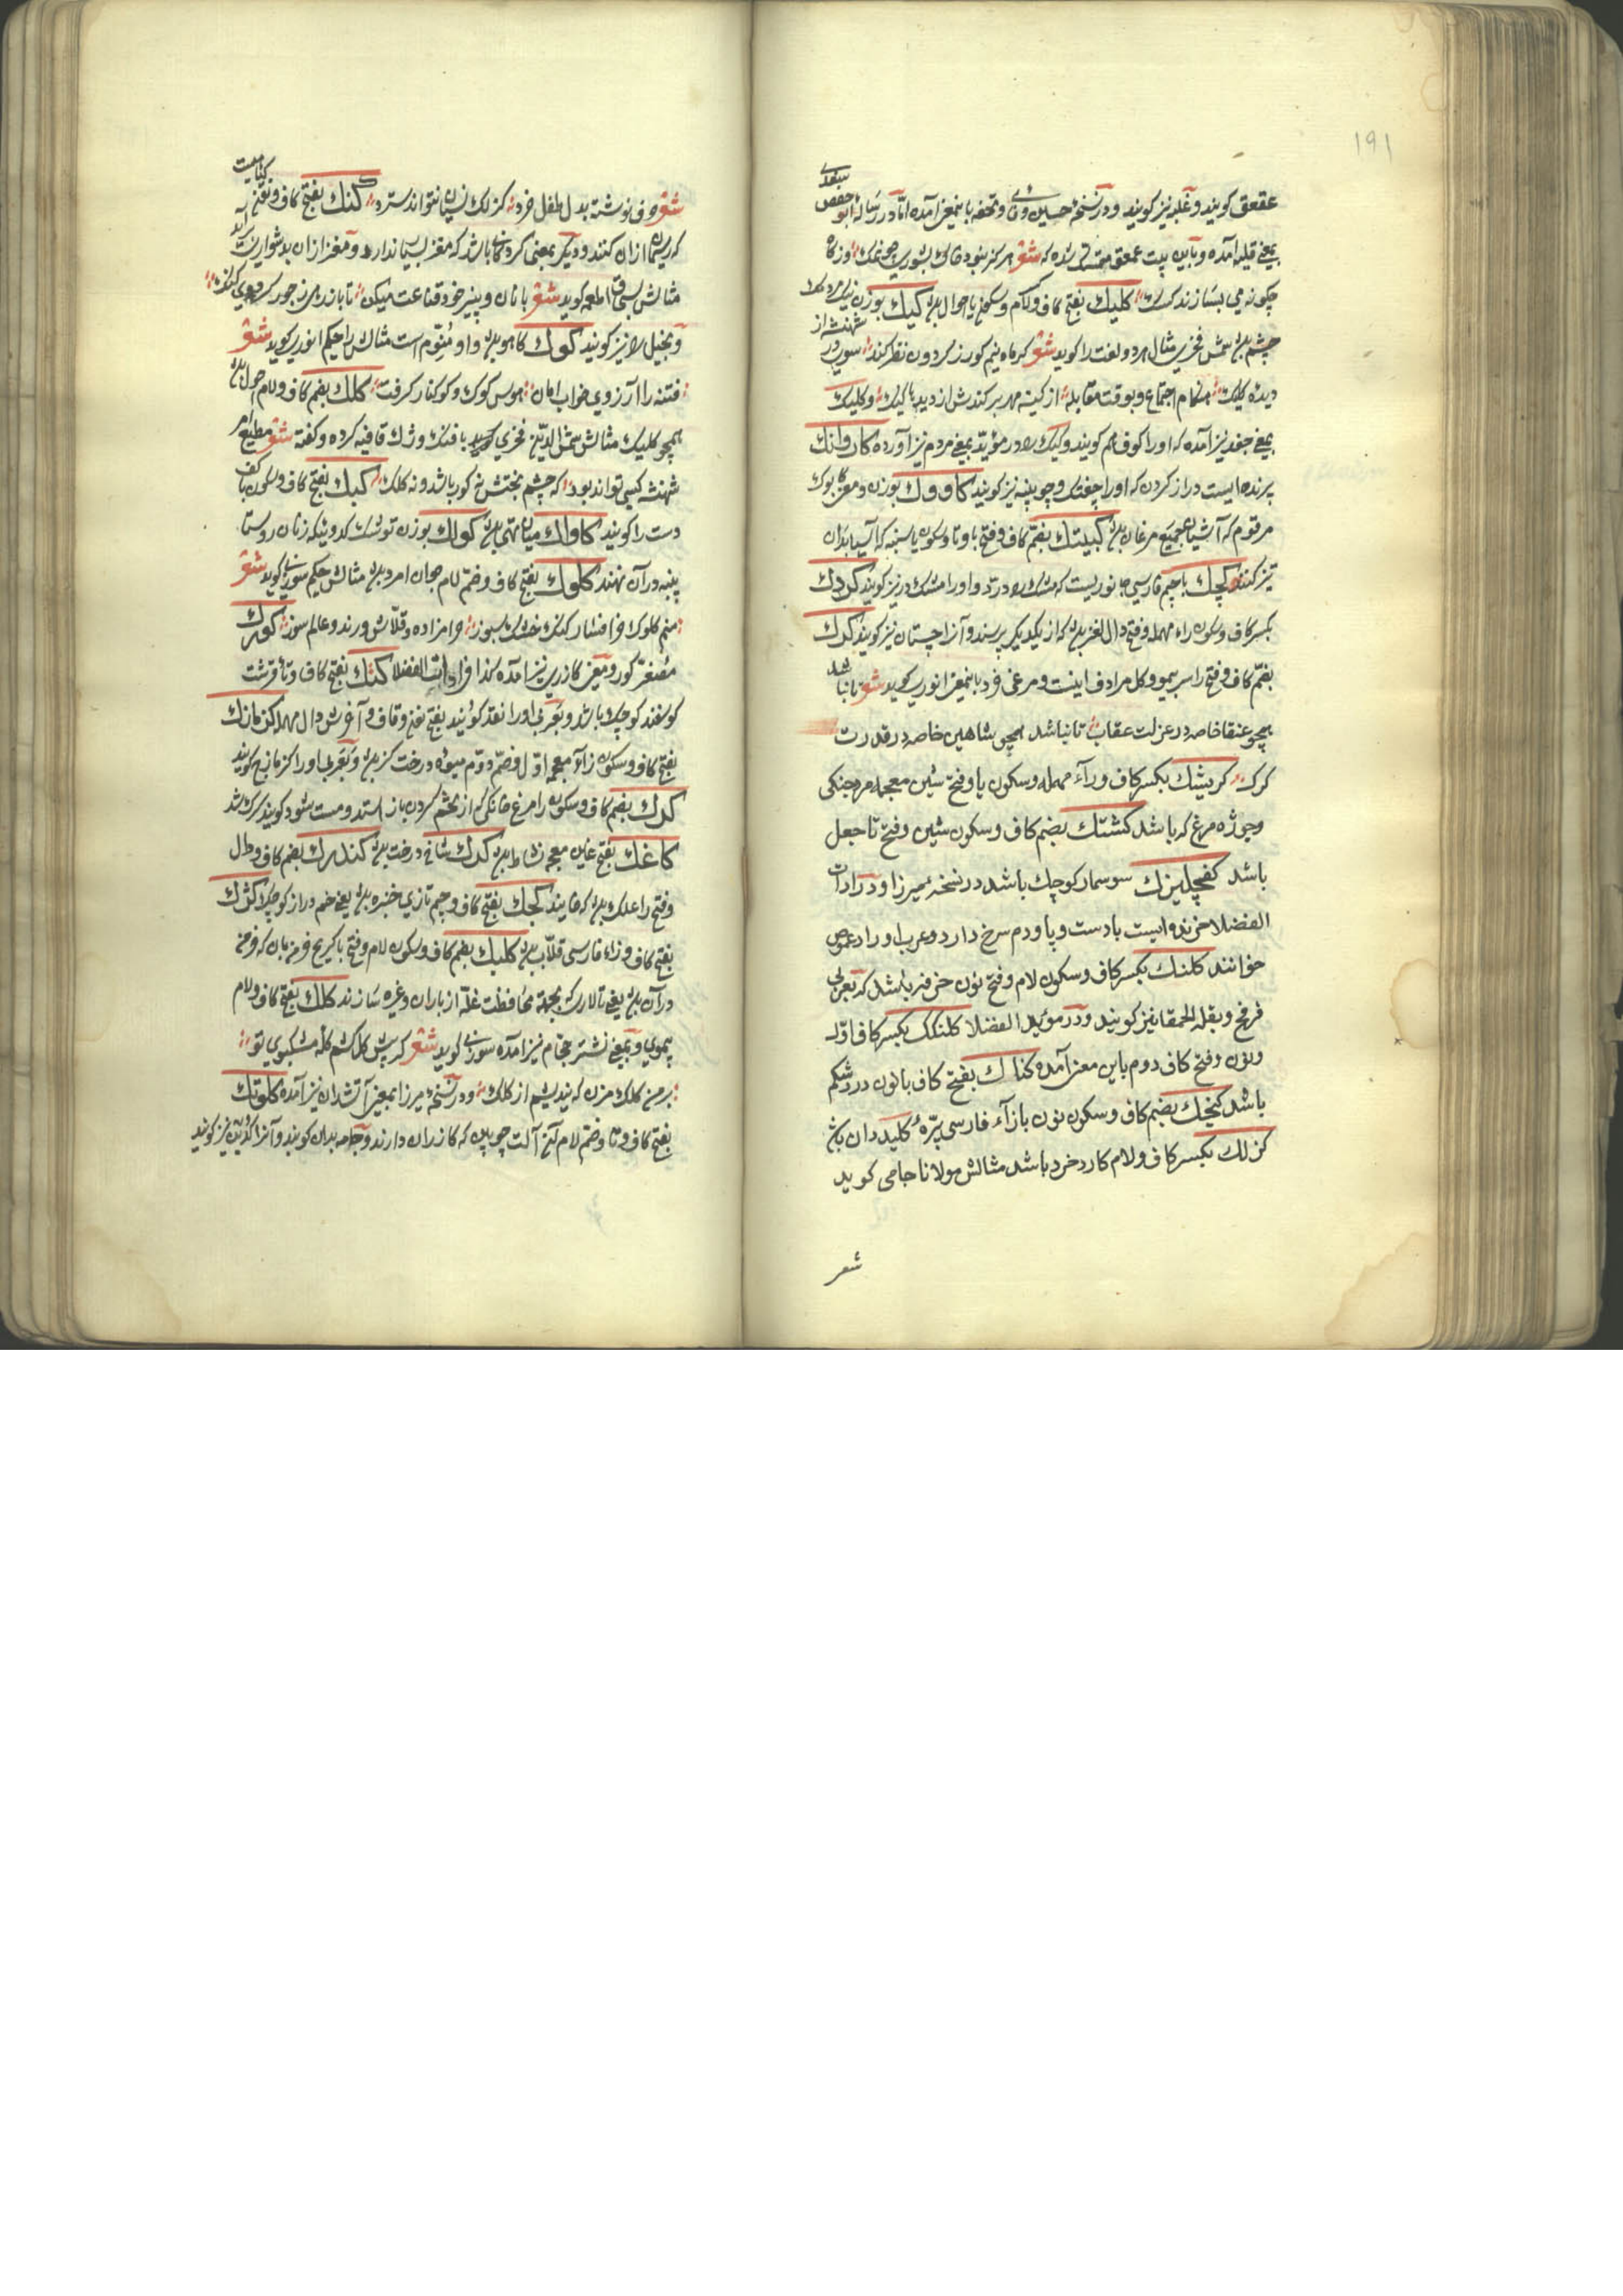 ۱۹۱
عقعق کویند وغلبه نیز کویند ودر نسخهٔ حسین وفایی وتحفه باینمعنی آمده امّا در رسالهٔ ابو حفص سغدی
بمعنی قلیه آمده وباین بیت عمعق متمسک شده که شعر هرکز نبود خاک بشوری چو نمک وز کاه
چکونه می بسازند کسک کلیک بفتح کاف ولام وسکون یا احول باشد کیک بوزن نیک مردمک
چشم باشد شمس فخری مثال هر دو لغت را کوید شعر کر ماه نیم کور ز کردون نظر کند سوری در شهنشه از
دیده کلیک هنکام اجتماع وبوقت مقابله از کینه مهر برکندش از دیده کیک وکلیک
بمعنی جغد نیز آمده که اورا کوف هم کویند وکیک را در مؤید بمعنی مردم نیز آورده کاروانک
پرنده ایست دراز کردن که اورا چفتک وچوبینه نیز کویند کاووک بوزن ومعنی کابوک
مرقوم که آشیانه جمیع مرغان باشد کبیتک بضم کاف وفتح با وتا وسکون یا سنبه که آسیا بدان
تیز کنند کچک با جیم فارسی جانوریست که مشک را درّد واورا مشک در نیز کویند کردک
بکسر کاف وسکون راء مهمله وفتح دال لغز باشد که از یکدیکر پرسند وآنرا چستان نیز کویند کرک
بضم کاف وفتح را سر بیمو وکل مرادف اینست ومرغی فرد باینمعنی انوری کوید شعر تا نباشد
همچو عنقا خاصه در عزلت عقاب تا نباشد همچو شاهین خاصه در قدرت
کرک کریشک بکسر کاف وراء مهمله وسکون یا وفتح شین معجمه مرد جنکی
وچوژه مرغ که باشد کشتک بضم کاف وسکون شین وفتح تا جعل
باشد کفچلیزک سوسمار کوچک باشد در نسخهٔ میرزا ودر ادات
الفضلا خزنده ایست با دست وپا ودم سرخ دارد وعرب اورا دعموص
خوانند کلنک بکسر کاف وسکون لام وفتح نون خرفه باشد که بعربی
فرفخ وبقلة الحمقا نیز کویند ودر مؤید الفضلا کلنکک بکسر کاف اوّل
ونون وفتح کاف دوم باین معنی آمده کناک بفتح کاف با نون درد شکم
باشد کنجک بضم کاف وسکون نون با زاء فارسی پرّهٔ کلید دان باشد
کزلک بکسر کاف ولام کارد خرد باشد مثالش مولانا جامی کوید
شعر
شعر حرف نوشته بدل طفل خرد کزلک نسیان نتواند سترد کنک بفتح کاف ونون کتابیست
که ریسمان از آن کنند ودیکر بمعنی کردکانی باشد که مغز بسیار ندارد ومغز از آن بدشواری برآید
مثالش بسحق اطعمه کوید شعر با نان وپنیر خود قناعت میکن تا باز دهی ز جور کردوی کنک
وبخیل را نیز کویند کوک کاهو باشد واو منوّم است مثالش را حکیم انوری کوید شعر
فتنه را آرزوی خواب امان هوس کوک وکوکنار کرفت کلک بضم کاف ولام احول باشد
همچو کلیک مثالش شمس الدین فخری کوید با فنک وزک قافیه کرده وکفته شعر مطیع امر
شهنشه کسی تواند بود که چشم بختش نه کور باشد ونه کلک کبک بفتح کاف وسکون با کف
دست را کویند کاواک میان تهی باشد کواک بوزن تو شک کدویینکه زنان روستا
پنبه در آن نهند کلوک بفتح کاف وضم لام جوان امرد باشد مثالش حکیم سوزنی کوید شعر
منم کلوک خرافشار کنک خشک سپوز حرامزاده وقلاش ورند وعالم سوز کورک
مصغر کور ومعنی کازری نیز آمده کذا فی ادات الفضلا کتک بفتح کاف وتاء قرشت
کوسفند کوچک باشد وبعربی اورا نقد کویند بفتح نون وقاف وآخرش دال مهمله کزمازک
بفتح کاف وسکون زاء معجمه اوّل وضم دوم میوه درخت کز باشد وبعربی اورا کزمازج کویند
کرک بضم کاف وسکون را مرغ خانکی که از تخم کردن باز استد ومست شود کویند کرک شد
کاغک بفتح غاین معجمه نشاط باشد کرک شاخ درخت باشد کندرک بضم کاف ودال
وفتح را علک باشد که خایند کجک بفتح کاف وجیم تازی خنبره باشد یعنی خم دراز کوچک کژک
بفتح کاف وزاء فارسی قلّاب باشد کلبک بضم کاف وسکون لام وفتح با کریج خرمن بان که خرمن
در آن باشد یعنی تالاری که بجهة محافظت غلّه از باران وغیره سازند کلک بفتح کاف ولام
بیموی وبمعنی نشتر حجام نیز آمده سوزنی کوید شعر
برمن کلک مزن که نیندیشم از کلک ودر نسخهٔ میرزا بمعنی آتشدان نیز آمده کلوتک
بفتح کاف وتا وضم لام آن آلت چوبین که کازران دارند وجامه بدان کوبند وآنرا کدین نیز کویند